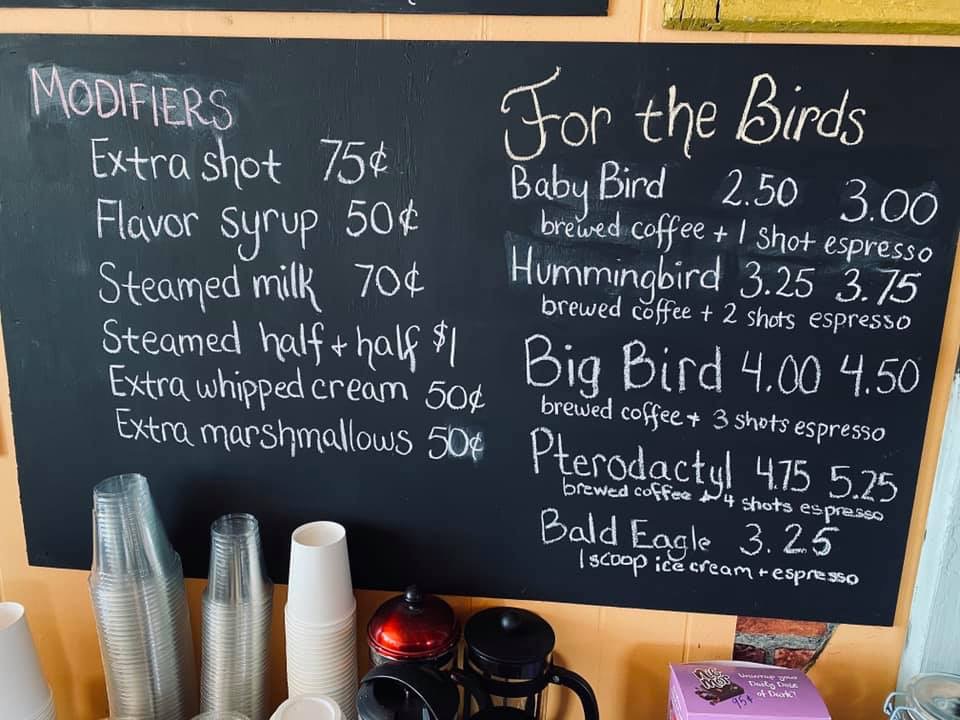 MODIFIERS
Extra shot 75¢
Flavor syrup 50¢
Steamed milk 70¢
Steamed half + half $1
Extra whipped cream 50¢
Extra marshmallows 50¢
For the Birds
Baby Bird 2.50 3.00
brewed coffee + 1 shot espresso
Hummingbird 3.25 3.75
brewed coffee + 2 shots espresso
Big Bird 4.00 4.50
brewed coffee + 3 shots espresso
Pterodactyl 4.75 5.25
brewed coffee + 4 shots espresso
Bald Eagle 3.25
1 scoop ice cream + espresso
Unwrap your
Daily Dose
of Dark!
95¢